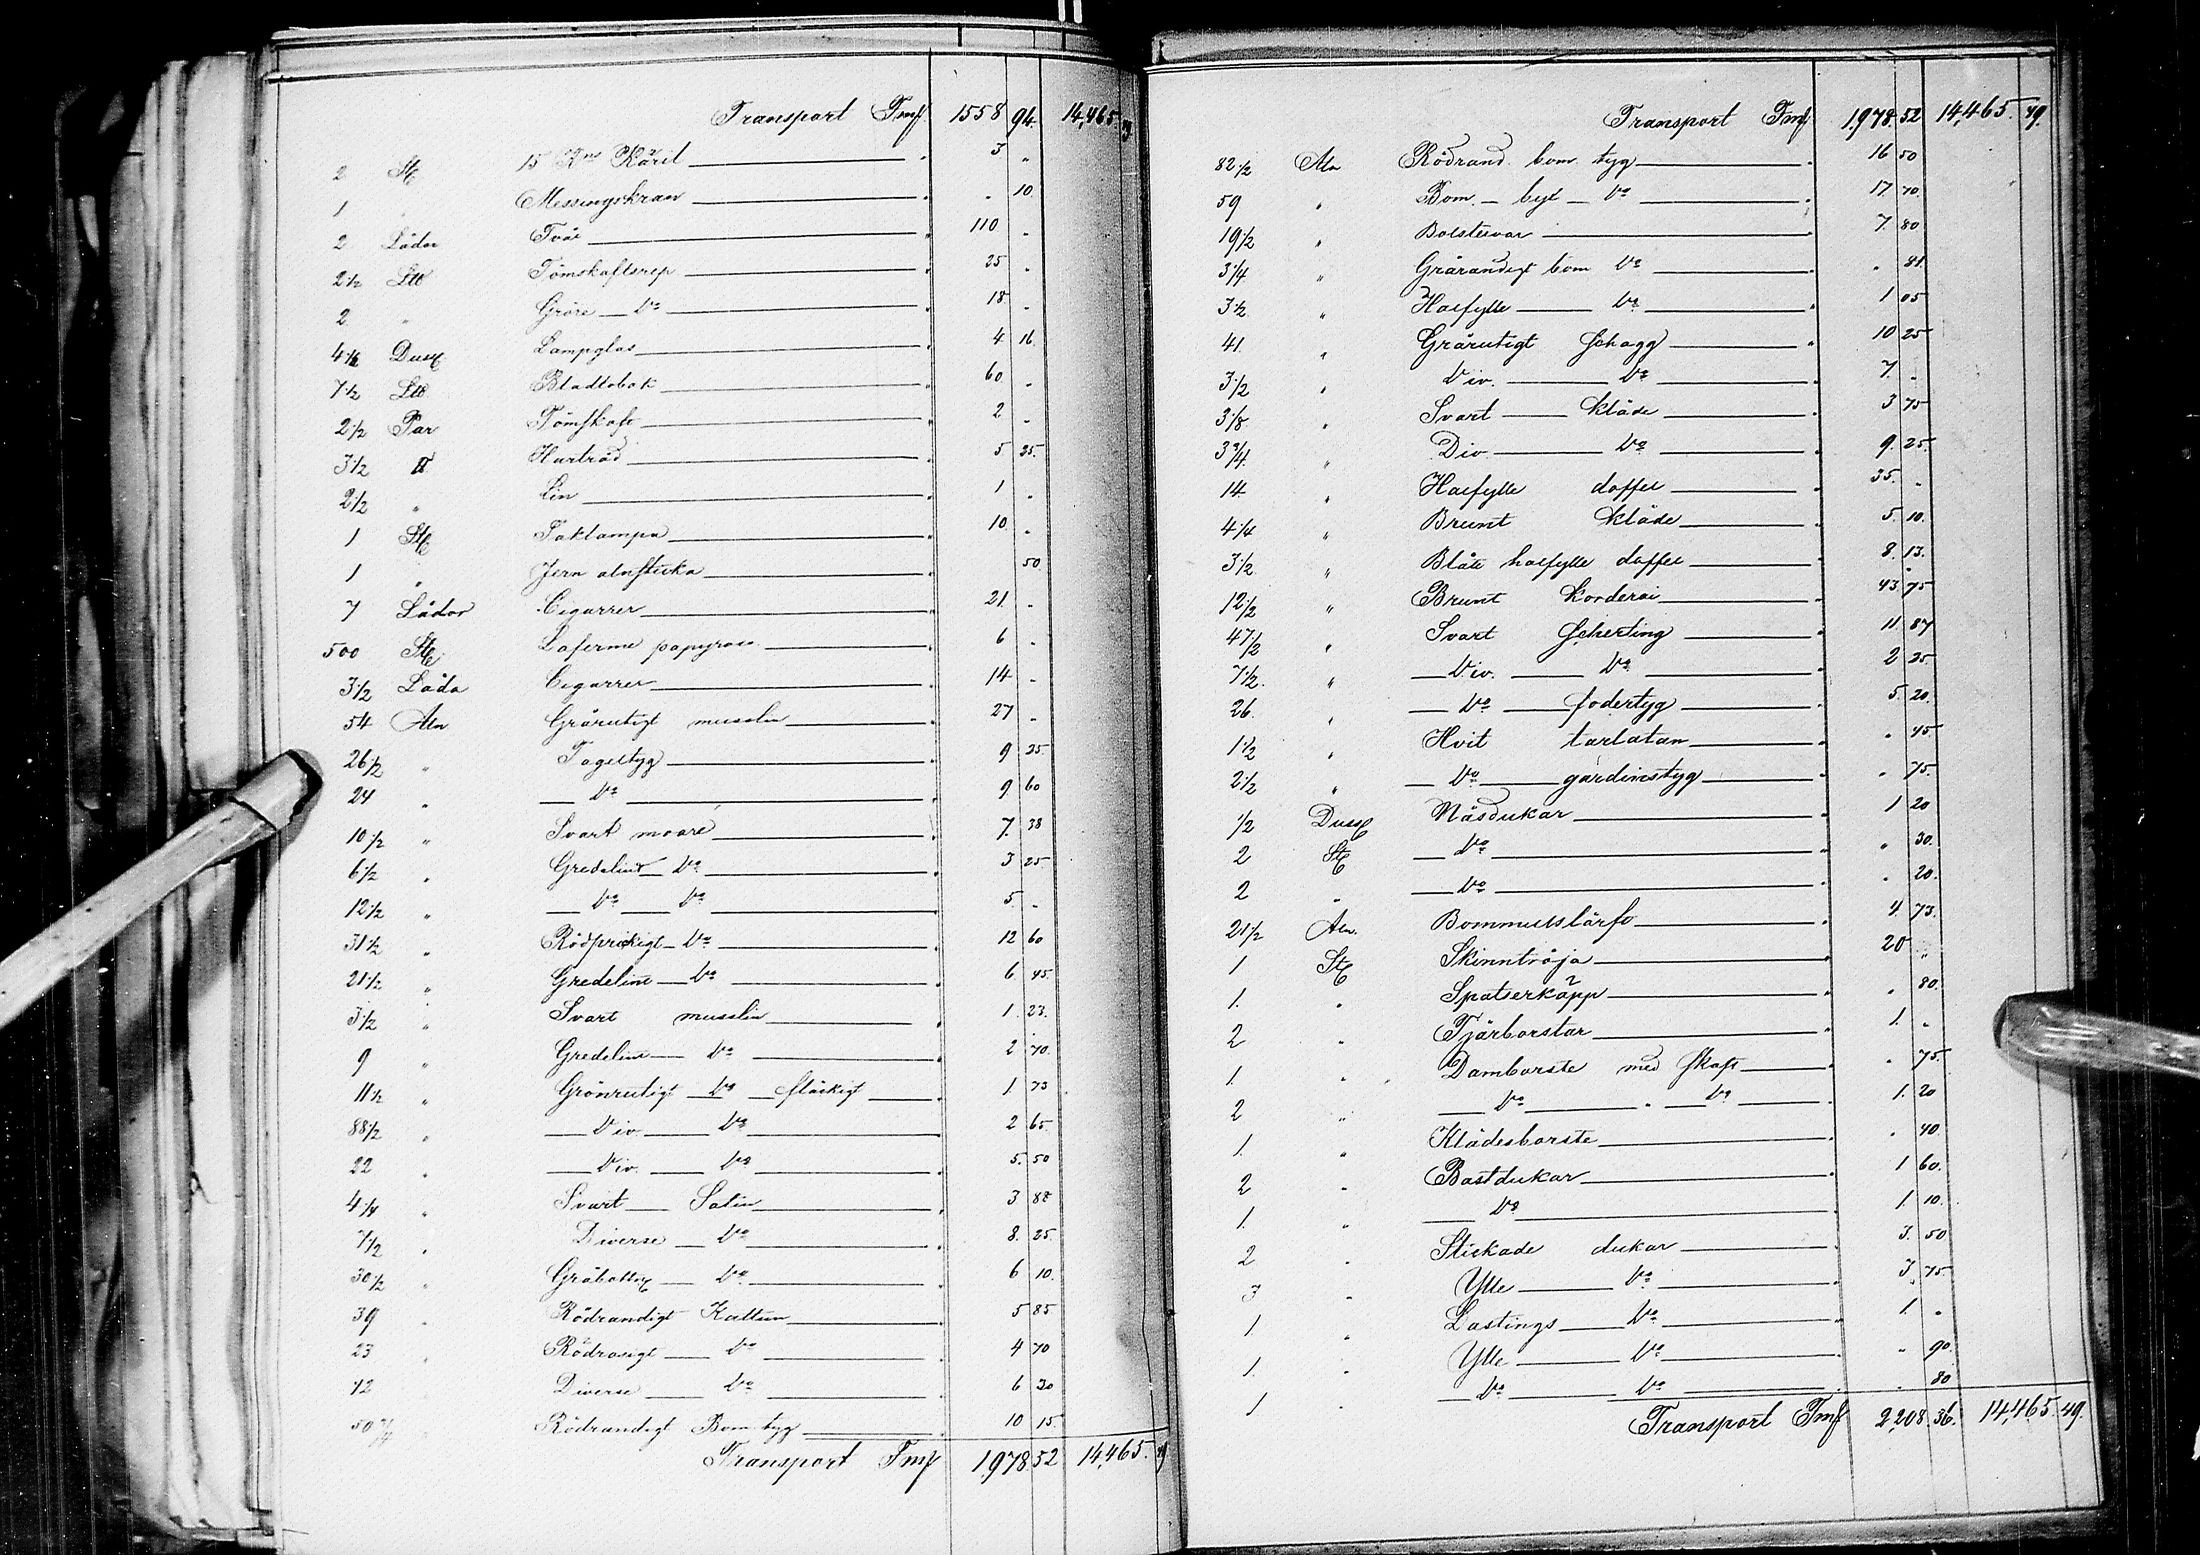 Transport Fmf 1558 94. 14,465. 49
2 St 15 Kns Käril " 3 "
1 " Messingskran " " 10.
2 Lådor Tvål " 110 "
2 1/2 Lll Tömskaftsrep " 25 "
2 " Gröre Do " 18 "
4 1/6 Duss Lampglas " 4 16.
7 1/2 Lll Bladtobak " 60 "
2 1/2 Par Tömskaft " 2 "
3 1/2 ℔ Hartråd " 5 25.
2 1/2 " Lin " 1 "
1 St Taklampa " 10 "
1 " Jern alnsticka " " 50.
7 Lådor Cigarrer " 21. "
500 St Laferme papyross " 6 "
3 1/2 Låda Cigarrer " 14 "
54 Aln Grårutigt musslin " 27 "
26 1/2 " Tageltyg " 9 25
24 " Do " 9 60
10 1/2 " Svart moaré " 7. 38
6 1/2 " Gredelint Do " 3 25
12 1/2 " Do Do " 5. "
31 1/2 " Rödprickigt Do " 12 60
21 1/2 " Gredelint Do " 6 45
3 1/2 " Svart musslin " 1. 23.
9 " Gredelint Do " 2 70.
11 1/2 " Grönrutigt Do fläckigt " 1. 73
88 1/2 " Div. Do " 2 65.
22 " Div. Do " 5. 50
4 1/4 " Svart Satin " 3 82
7 1/2 " Diverse Do " 8. 25.
30 1/2 " Gråbottig Do " 6 10.
39 " Rödrandigt Kattun " 5 85
23 " Rödrosigt Do " 4 70
42 " Diverse Do " 6 30
50 3/4 " Rödrandigt Bom. tyg " 10 15
Transport Fmf 1,978 52 14,465. 49
Transport Fmf 1,978. 52 14,465. 49.
82 1/2 Aln Rödrand. bom. tyg " 16 50
59 " Bom. byx Do " 17 70
19 1/2 " Bolstervar " 7. 80
3 1/4 " Grårandigt bom Do " " 81
3 1/2 " Halfylle Do " 1 05
41. " Grårutigt Schagg " 10 25
3 1/2 " Div. Do " 7. "
3 1/8 " Svart kläde " 3 75
3 3/4 " Div Do " 9. 25.
14 " Halfylle doffel " 35. "
4 1/4 " Brunt kläde " 5. 10.
3 1/2 " Blått halfylle doffel " 8. 13.
12 1/2 " Brunt Korderoi " 43. 75
47 1/2 " Svart Scherting " 11 87
7 1/2. " Div. Do " 2 25
26. " Do fodertyg " 5. 20.
1 1/2 " Hvit tarlatan " " 45
2 1/2 " Do gardinstyg " " 75.
1/2 Duss Näsdukar " 1 20
2 St Do " " 30.
2 " Do " " 20.
21 1/2 Aln. Bommullslärft " 4. 73.
1 St Skinntröja " 20 "
1. " Spatserkäpp " " 80.
2 " Tjärborstar " 1. "
1. " Damborste med skaft " " 75
2 " Do " Do " 1. 20
1. " Klädesborste " " 40
2 " Bastdukar " 1 60.
1. " Do " 1. 10.
2 " Stickade dukar " 3. 50
3 " Ylle Do " 3 75.
1 " Lastings Do " 1. "
1. " Ylle Do " " 90.
1 " Do Do " " 80
Transport Fmf 2,208 36. 14,465. 49.